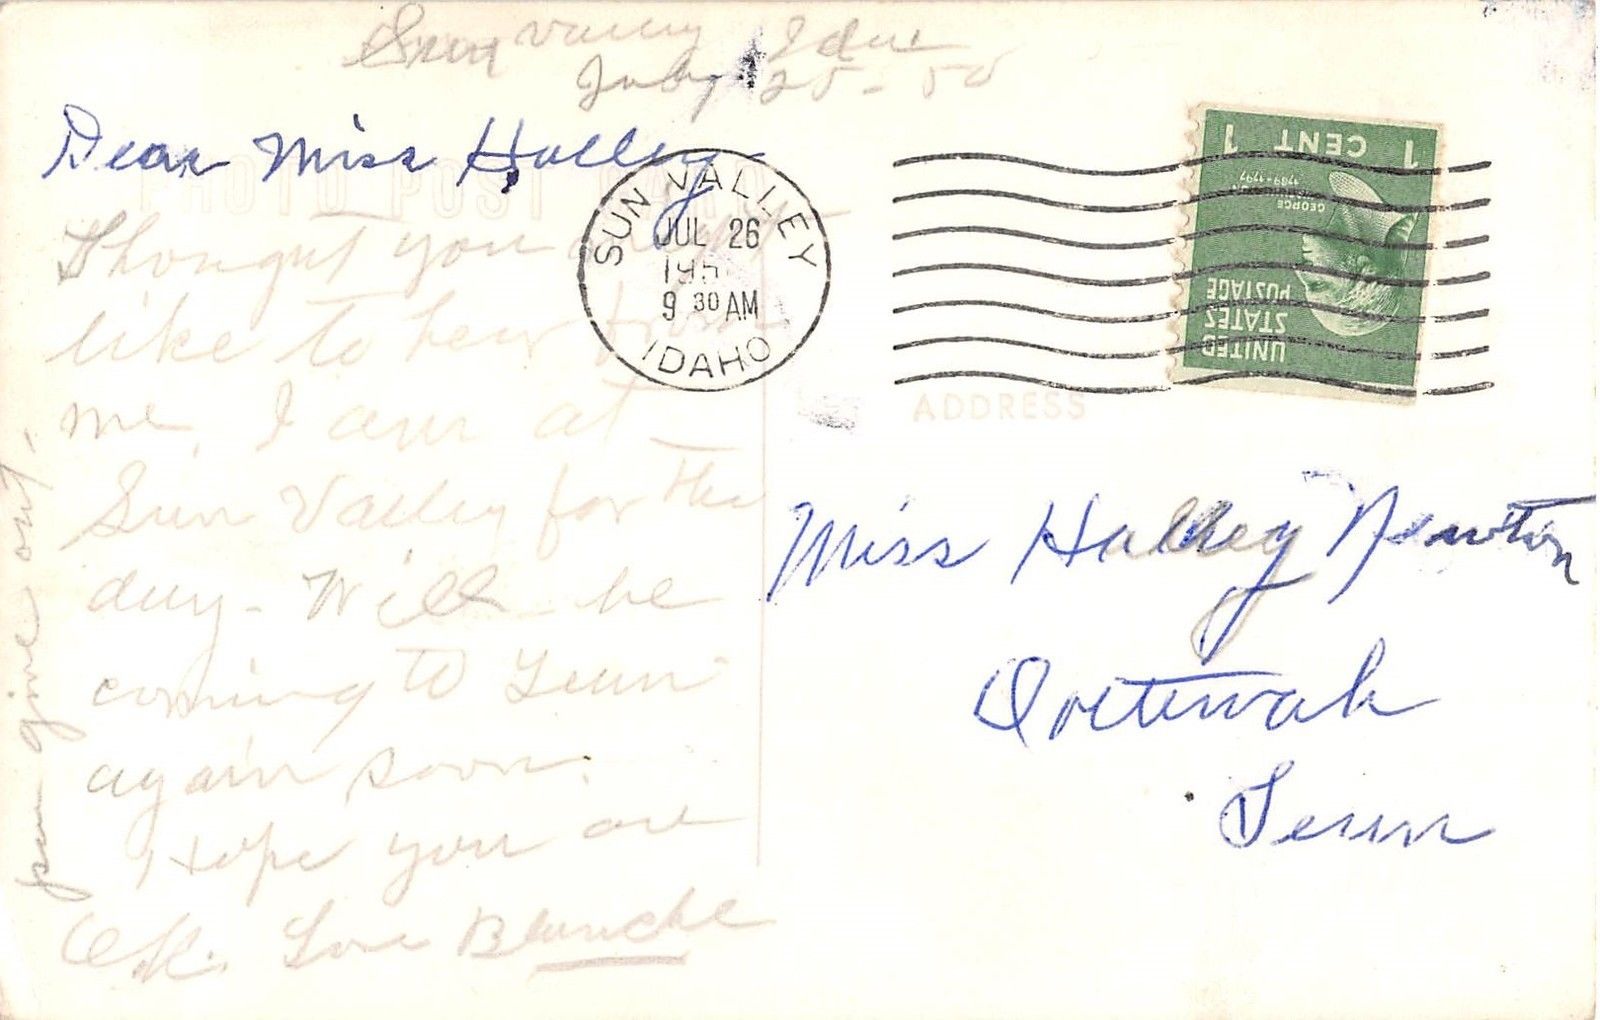 Sun Valley Ida
July 25 - 50
Dear Miss Halley
PHOTO POST CARD
Thought you might
like to hear from
me, I am at
Sun Valley for the
day - Will be
coming to Tenn
again soon.
Hope you are
OK. Love Blanche
pen give out,
SUN VALLEY
JUL 26
9 30 AM
IDAHO
1 CENT 1
GEORGE
1789-1797
UNITED
STATES
POSTAGE
ADDRESS
Miss Halley Newton
Ooltewah
Tenn